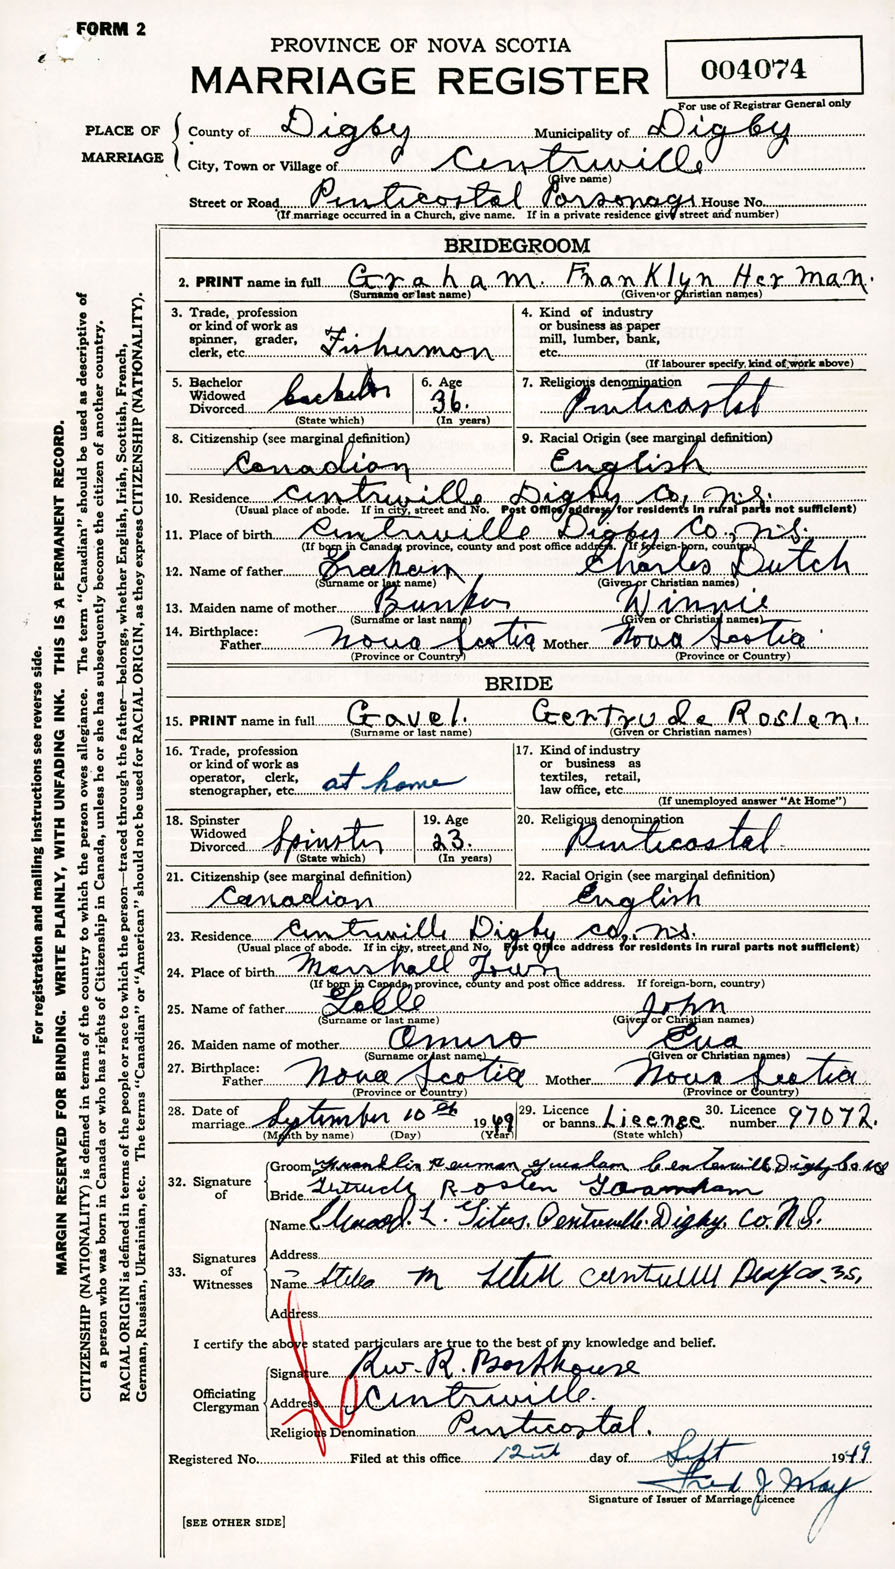 FORM 2
PROVINCE OF NOVA SCOTIA
MARRIAGE REGISTER
004074
For use of Registrar General only
PLACE OF MARRIAGE
County of Digby Municipality of Digby
City, Town or Village of Centrville
(Give name)
Street or Road Penticostal Parsonage House No.
(If marriage occurred in a Church, give name. If in a private residence give street and number)
BRIDEGROOM
2. PRINT name in full Graham. Franklyn Herman.
(Surname or last name) (Given or Christian names)
3. Trade, profession or kind of work as spinner, grader, clerk, etc. Fishermon
4. Kind of industry or business as paper mill, lumber, bank, etc.
(If labourer specify, kind of work above)
5. Bachelor Widowed Divorced bachelor
(State which)
6. Age 36.
(In years)
7. Religious denomination Penticostal
8. Citizenship (see marginal definition) Canadian
9. Racial Origin (see marginal definition) English
10. Residence Centrville Digby Co, n.s.
(Usual place of abode. If in city, street and No. Post Office address for residents in rural parts not sufficient)
11. Place of birth Centrville Digby Co., n.s.
(If born in Canada, province, county and post office address. If foreign-born, country)
12. Name of father Graham Charles Dutch
(Surname or last name) (Given or Christian names)
13. Maiden name of mother Bunker Winnie
(Surname or last name) (Given or Christian names)
14. Birthplace: Father Nova Scotia Mother Nova Scotia
(Province or Country) (Province or Country)
BRIDE
15. PRINT name in full Gavel. Gertrude Roslen.
(Surname or last name) (Given or Christian names)
16. Trade, profession or kind of work as operator, clerk, stenographer, etc. at home
17. Kind of industry or business as textiles, retail, law office, etc.
(If unemployed answer "At Home")
18. Spinster Widowed Divorced Spinster
(State which)
19. Age 23.
(In years)
20. Religious denomination Penticostal.
21. Citizenship (see marginal definition) Canadian
22. Racial Origin (see marginal definition) English
23. Residence Centrville Digby co, n.s.
(Usual place of abode. If in city, street and No. Post Office address for residents in rural parts not sufficient)
24. Place of birth Marshall Town
(If born in Canada, province, county and post office address. If foreign-born, country)
25. Name of father John
(Surname or last name) (Given or Christian names)
26. Maiden name of mother Omero Eva
(Surname or last name) (Given or Christian names)
27. Birthplace: Father Nova Scotia Mother Nova Scotia
(Province or Country) (Province or Country)
28. Date of marriage September 10th 1949
(Month by name) (Day) (Year)
29. Licence or banns License
(State which)
30. Licence number 97072.
32. Signature of
Groom Franklin Herman Graham Centerville Digby Co NS
Bride Gertrude Roslen
33. Signatures of Witnesses
Name L. Titus. Centreville. Digby. Co. N.S.
Address
Name M
Address
I certify the above stated particulars are true to the best of my knowledge and belief.
Officiating Clergyman
Signature Rev. R. Barkhouse
Address Centrville.
Religious Denomination Penticostal.
Registered No. Filed at this office 12th day of Sept 1949
Fred J May
Signature of Issuer of Marriage Licence
[SEE OTHER SIDE]
For registration and mailing instructions see reverse side.
MARGIN RESERVED FOR BINDING. WRITE PLAINLY, WITH UNFADING INK. THIS IS A PERMANENT RECORD.
CITIZENSHIP (NATIONALITY) is defined in terms of the country to which the person owes allegiance. The term "Canadian" should be used as descriptive of
a person who was born in Canada or who has rights of Citizenship in Canada, unless he or she has subsequently become the citizen of another country.
RACIAL ORIGIN is defined in terms of the people or race to which the person—traced through the father—belongs, whether English, Irish, Scottish, French,
German, Russian, Ukrainian, etc. The terms "Canadian" or "American" should not be used for RACIAL ORIGIN, as they express CITIZENSHIP (NATIONALITY).